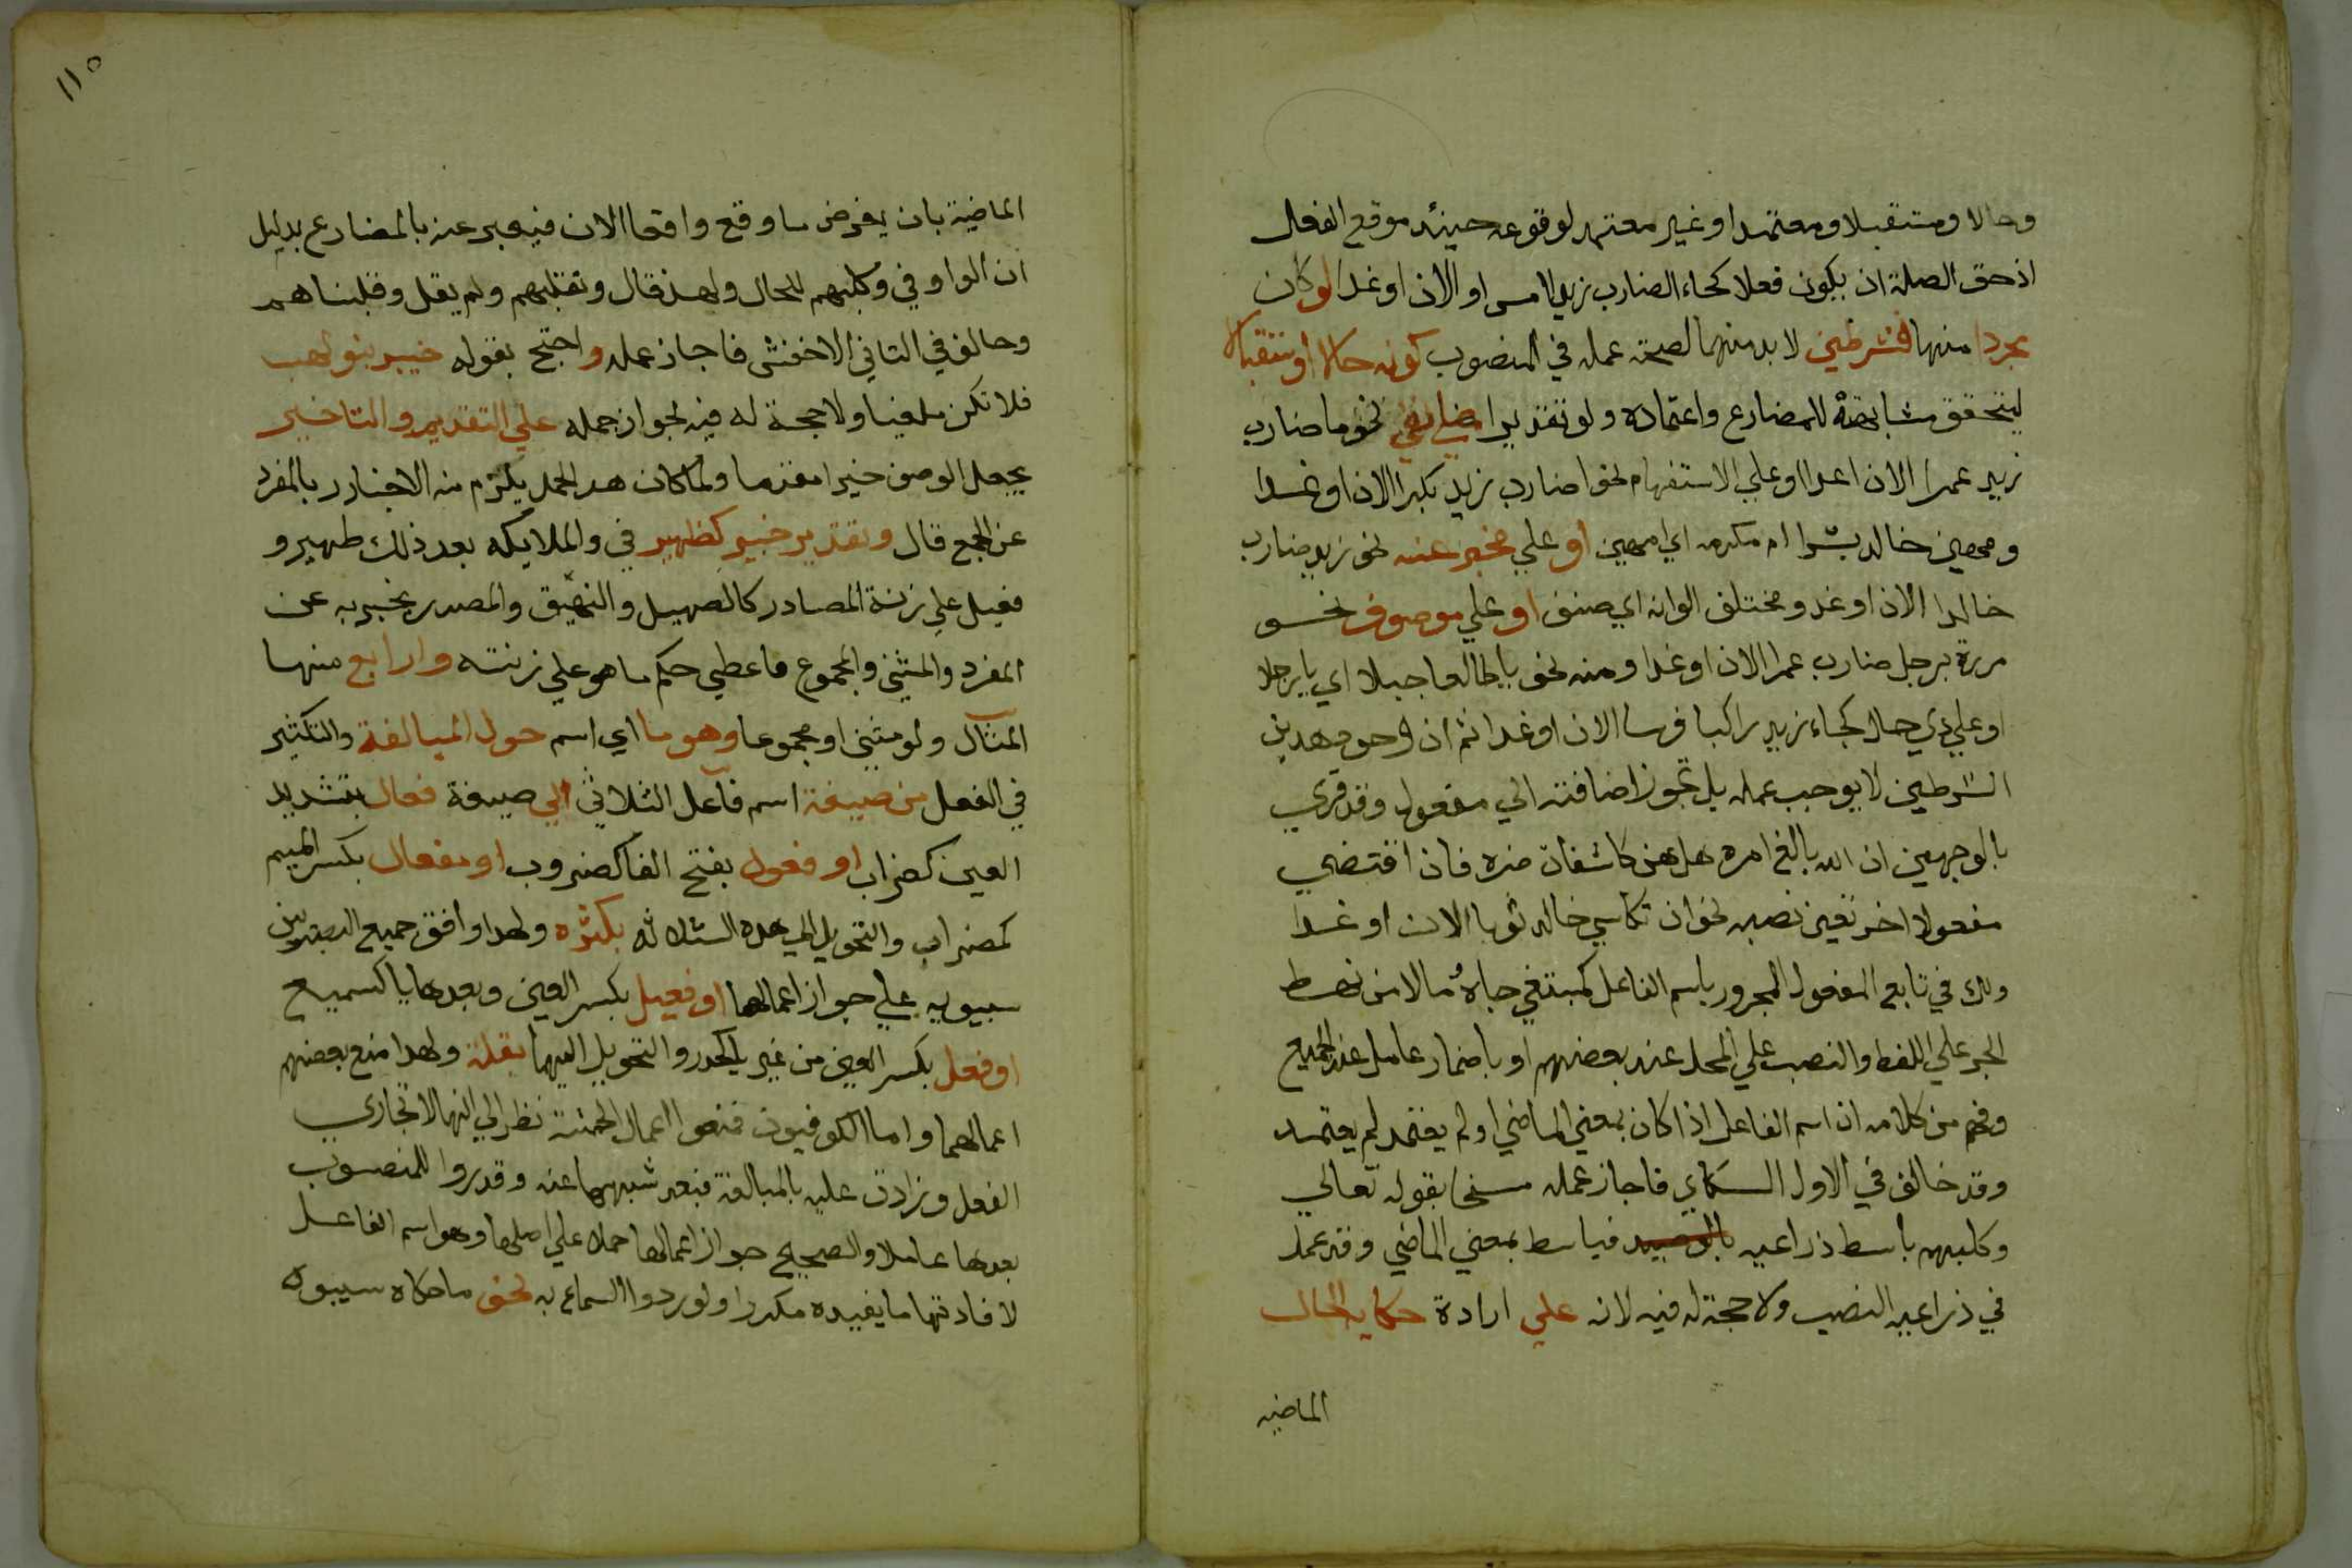 وحالا ومستقبلا ومعتمدا او غير معتمد لوقوعه حينئذ موقع الفعل
اذ حق الصلة ان يكون فعلا كجاء الضارب زيدا امس او الان او غدا او كان
مجردا منها فشرطين لا بد منهما لصحة عمله في المنصوب كونه حالا او مستقبلا
ليتحقق مشابهته للمضارع واعتماده ولو تقديرا علي نفي نحو ما ضارب
زيد عمرا الان او غدا او علي الاستفهام نحو اضارب زيد بكرا الان او غدا
ومهين خالد بشرا ام مكرمه اي امهين او علي مخبر عنه نحو زيد ضارب
خالدا الان او غدا ومختلف الوانه اي صنف او علي موصوف نحو
مررة برجل ضارب عمرا الان او غدا ومنه نحو يا طالعا جبلا اي يا رجلا
او علي ذي حال كجاء زيد راكبا فرسا الان او غدا ثم ان وجود هدين
الشرطين لا يوجب عمله بل تجوز اضافته الي مفعوله وقد قري
بالوجهين ان الله بالغ امره هل هن كاشفات ضره فان اقتضي
مفعولا اخر تعين نصبه نحو ان كاسي خالد ثوبا الان او غدا
ولك في تابع المفعول المجرور باسم الفاعل كمبتغي جاه ومالا من نهض
الجر علي اللفظ والنصب علي المحل عند بعضهم او باضمار عامل عند الجميع
وفهم من كلامه ان اسم الفاعل اذا كان بمعني الماضي او لم يعتمد لم يعتمد
وقد خالف في الاول الكساي فاجاز عمله بقوله تعالي
وكلبهم باسط ذراعيه بالوصيد فباسط بمعني الماضي وقد عمل
في ذراعيه النصب ولا حجة له فيه لانه علي ارادة حكاية الحال
الماضيه
١١٥
الماضية بان يفرض ما وقع واقعا الان فيعبر عنه بالمضارع بدليل
ان الواو في وكلبهم للحال ولهذ قال ونقلبهم ولم يقل وقلبناهم
وخالف في الثاني الاخفش فاجاز عمله واحتج بقوله خبير بنو لهب
فلا تكن ملغيا ولا حجة له فيه لجواز حمله علي التقديم والتاخير
بجعل الوصف خبرا مقدما ولما كان هدا الحمل يلزم منه الاخبار بالمفرد
عن الجمع قال وتقديره خبير كظهير في والملايكه بعد ذلك ظهير و
فعيل علي زنة المصادر كالصهيل والنهيق والمصدر يخبر به عن
المفرد والمثني والمجموع فاعطي حكم ما هو علي زنته والرابع منها
المثال ولو مثني او مجموعا وهو ما اي اسم حول للمبالغة والتكثير
في الفعل من صيغة اسم فاعل الثلاثي الي صيغة فعال بتشديد
العين كضراب او فعول بفتح الفا كضروب او مفعال بكسر الميم
كمضراب والتحويل الي هده الثلاثه بكثره ولهدا وافق جميع البصريين
سيبويه علي جواز اعمالها او فعيل بكسر العين وبعدها يا كسميع
او فعل بكسر العين من غير يا كحدر والتحويل اليهما بقلة ولهدا منع بعضهم
اعمالهما واما الكوفيون فمنعوا اعمال الخمسة نظرا الي انها لا تجاري
الفعل وزادت عليه بالمبالغة فبعد شبهها عنه وقدروا للمنصوب
بعدها عاملا والصحيح جواز اعمالها حملا علي اصلها وهو اسم الفاعل
لافادتها ما يفيده مكررا ولورود السماع به نحو ما حكاه سيبويه